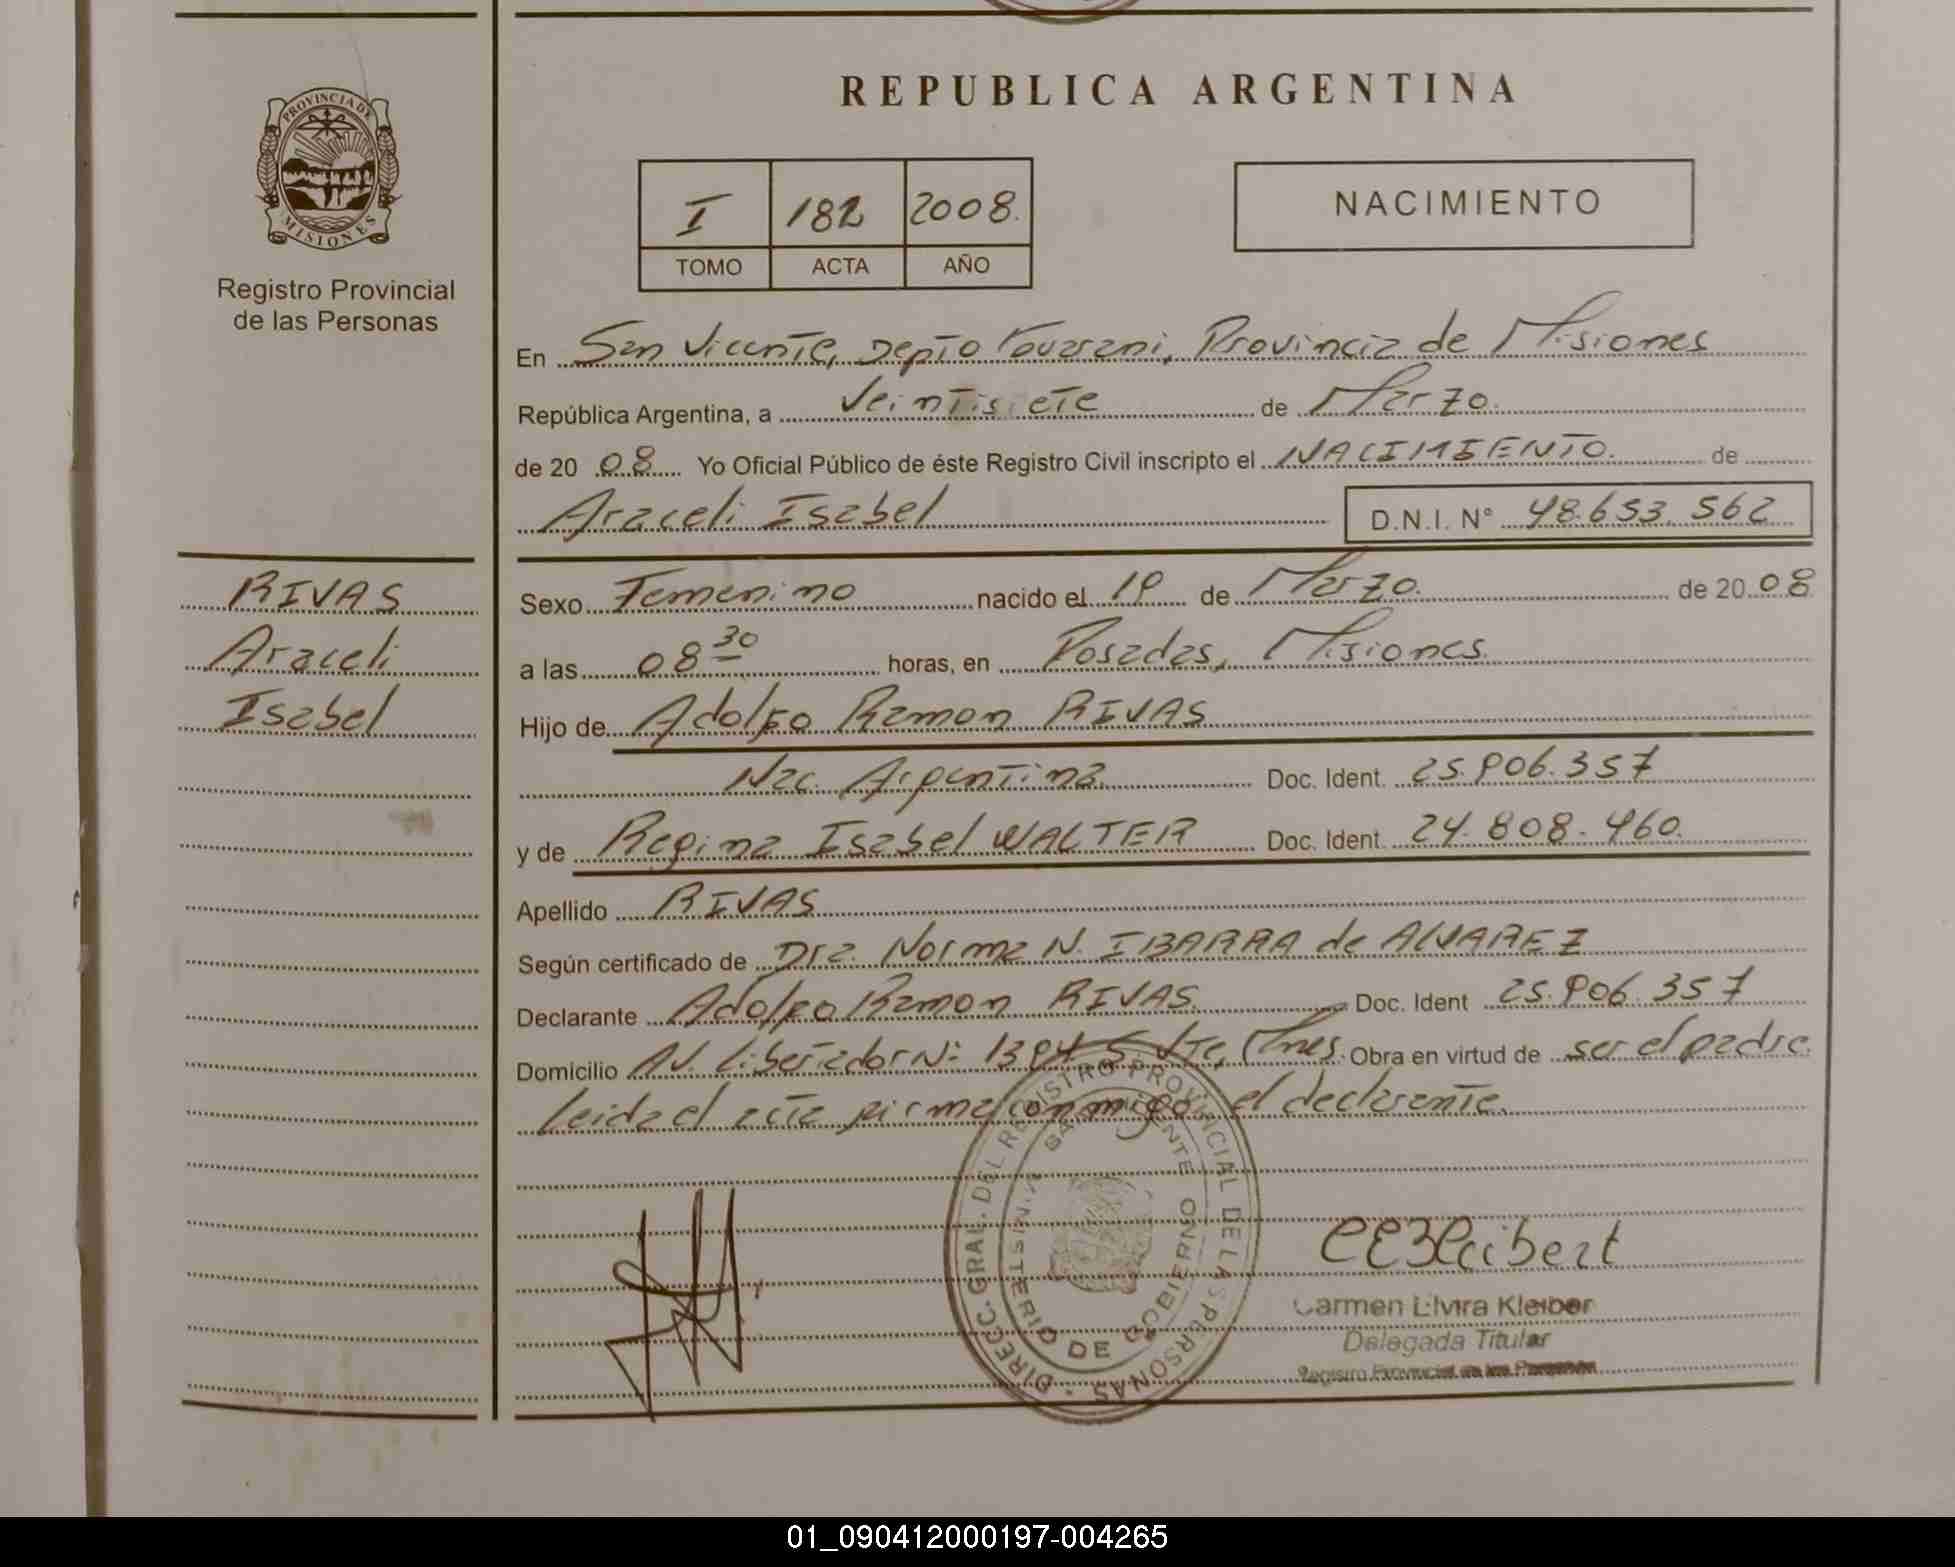 REPUBLICA ARGENTINA
PROVINCIA DE
MISIONES
Registro Provincial
de las Personas
I 182 2008
TOMO ACTA AÑO
NACIMIENTO
En San Vicente, Depto Guarani, Provincia de Misiones
República Argentina, a Veintisiete de Marzo.
de 20 08 Yo Oficial Público de éste Registro Civil inscripto el NACIMIENTO. de
Araceli Isabel D.N.I. N° 48.653.562
RIVAS
Araceli
Isabel
Sexo Femenino nacido el 19 de Marzo. de 20 08
a las 08 30 horas, en Posadas, Misiones.
Hijo de Adolfo Ramon RIVAS
Nac. Argentina. Doc. Ident. 25.906.357
y de Regina Isabel WALTER Doc. Ident. 24.808.460.
Apellido RIVAS
Según certificado de Dra. Norma N. IBARRA de ALVAREZ
Declarante Adolfo Ramon RIVAS. Doc. Ident 25.906.357
Domicilio AV. Libertador N: 1394 S. Vte, Mnes. Obra en virtud de ser el padre.
Leida el acta firma conmigo el declarante.
DIRECC. GRAL. DEL REGISTRO PROVINCIAL DE LAS PERSONAS
MINISTERIO DE GOBIERNO
Carmen Elvira Kleiber
Delegada Titular
Registro Provincial de las Personas
01_090412000197-004265